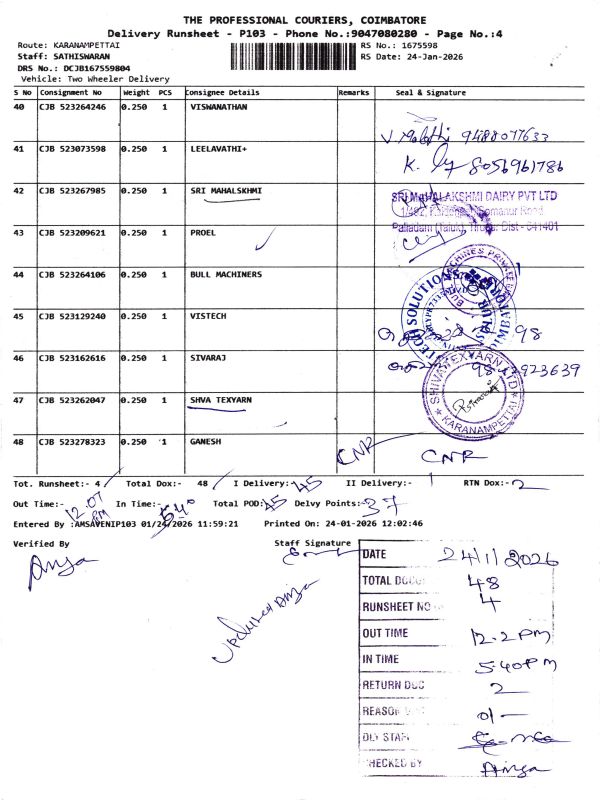 THE PROFESSIONAL COURIERS, COIMBATORE
Delivery Runsheet - P103 - Phone No.:9047080280 - Page No.:4
Route: KARANAMPETTAI
RS No.: 1675598
Staff: SATHISWARAN
RS Date: 24-Jan-2026
DRS No.: DCJB167559804
Vehicle: Two Wheeler Delivery
S No Consignment No Weight PCS Consignee Details Remarks Seal & Signature
40 CJB 523264246 0.250 1 VISWANATHAN
9488077633
41 CJB 523073598 0.250 1 LEELAVATHI+
8056961786
42 CJB 523267985 0.250 1 SRI MAHALSKHMI
SRI MAHALAKSHMI DAIRY PVT LTD
Palladam (Taluk), Tirupur Dist - 641401
43 CJB 523209621 0.250 1 PROEL
44 CJB 523264106 0.250 1 BULL MACHINERS
45 CJB 523129240 0.250 1 VISTECH
46 CJB 523162616 0.250 1 SIVARAJ
47 CJB 523262047 0.250 1 SHVA TEXYARN
SHIVA TEXYARN LTD
KARANAMPETTAI
48 CJB 523278323 0.250 1 GANESH
CNR CNR
Tot. Runsheet:- 4 Total Dox:- 48 I Delivery:-45 II Delivery:- RTN Dox:-2
Out Time:- 12.07 PM In Time:- Total POD:45 Delvy Points:-37
Entered By :AMSAVENIP103 01/24/2026 11:59:21 Printed On: 24-01-2026 12:02:46
Verified By
Staff Signature
DATE 24/1/2026
TOTAL DOCU 48
RUNSHEET NO 4
OUT TIME 12.2 PM
IN TIME 5:40 PM
RETURN DOC 2
REASON
DLY STAFF
CHECKED BY